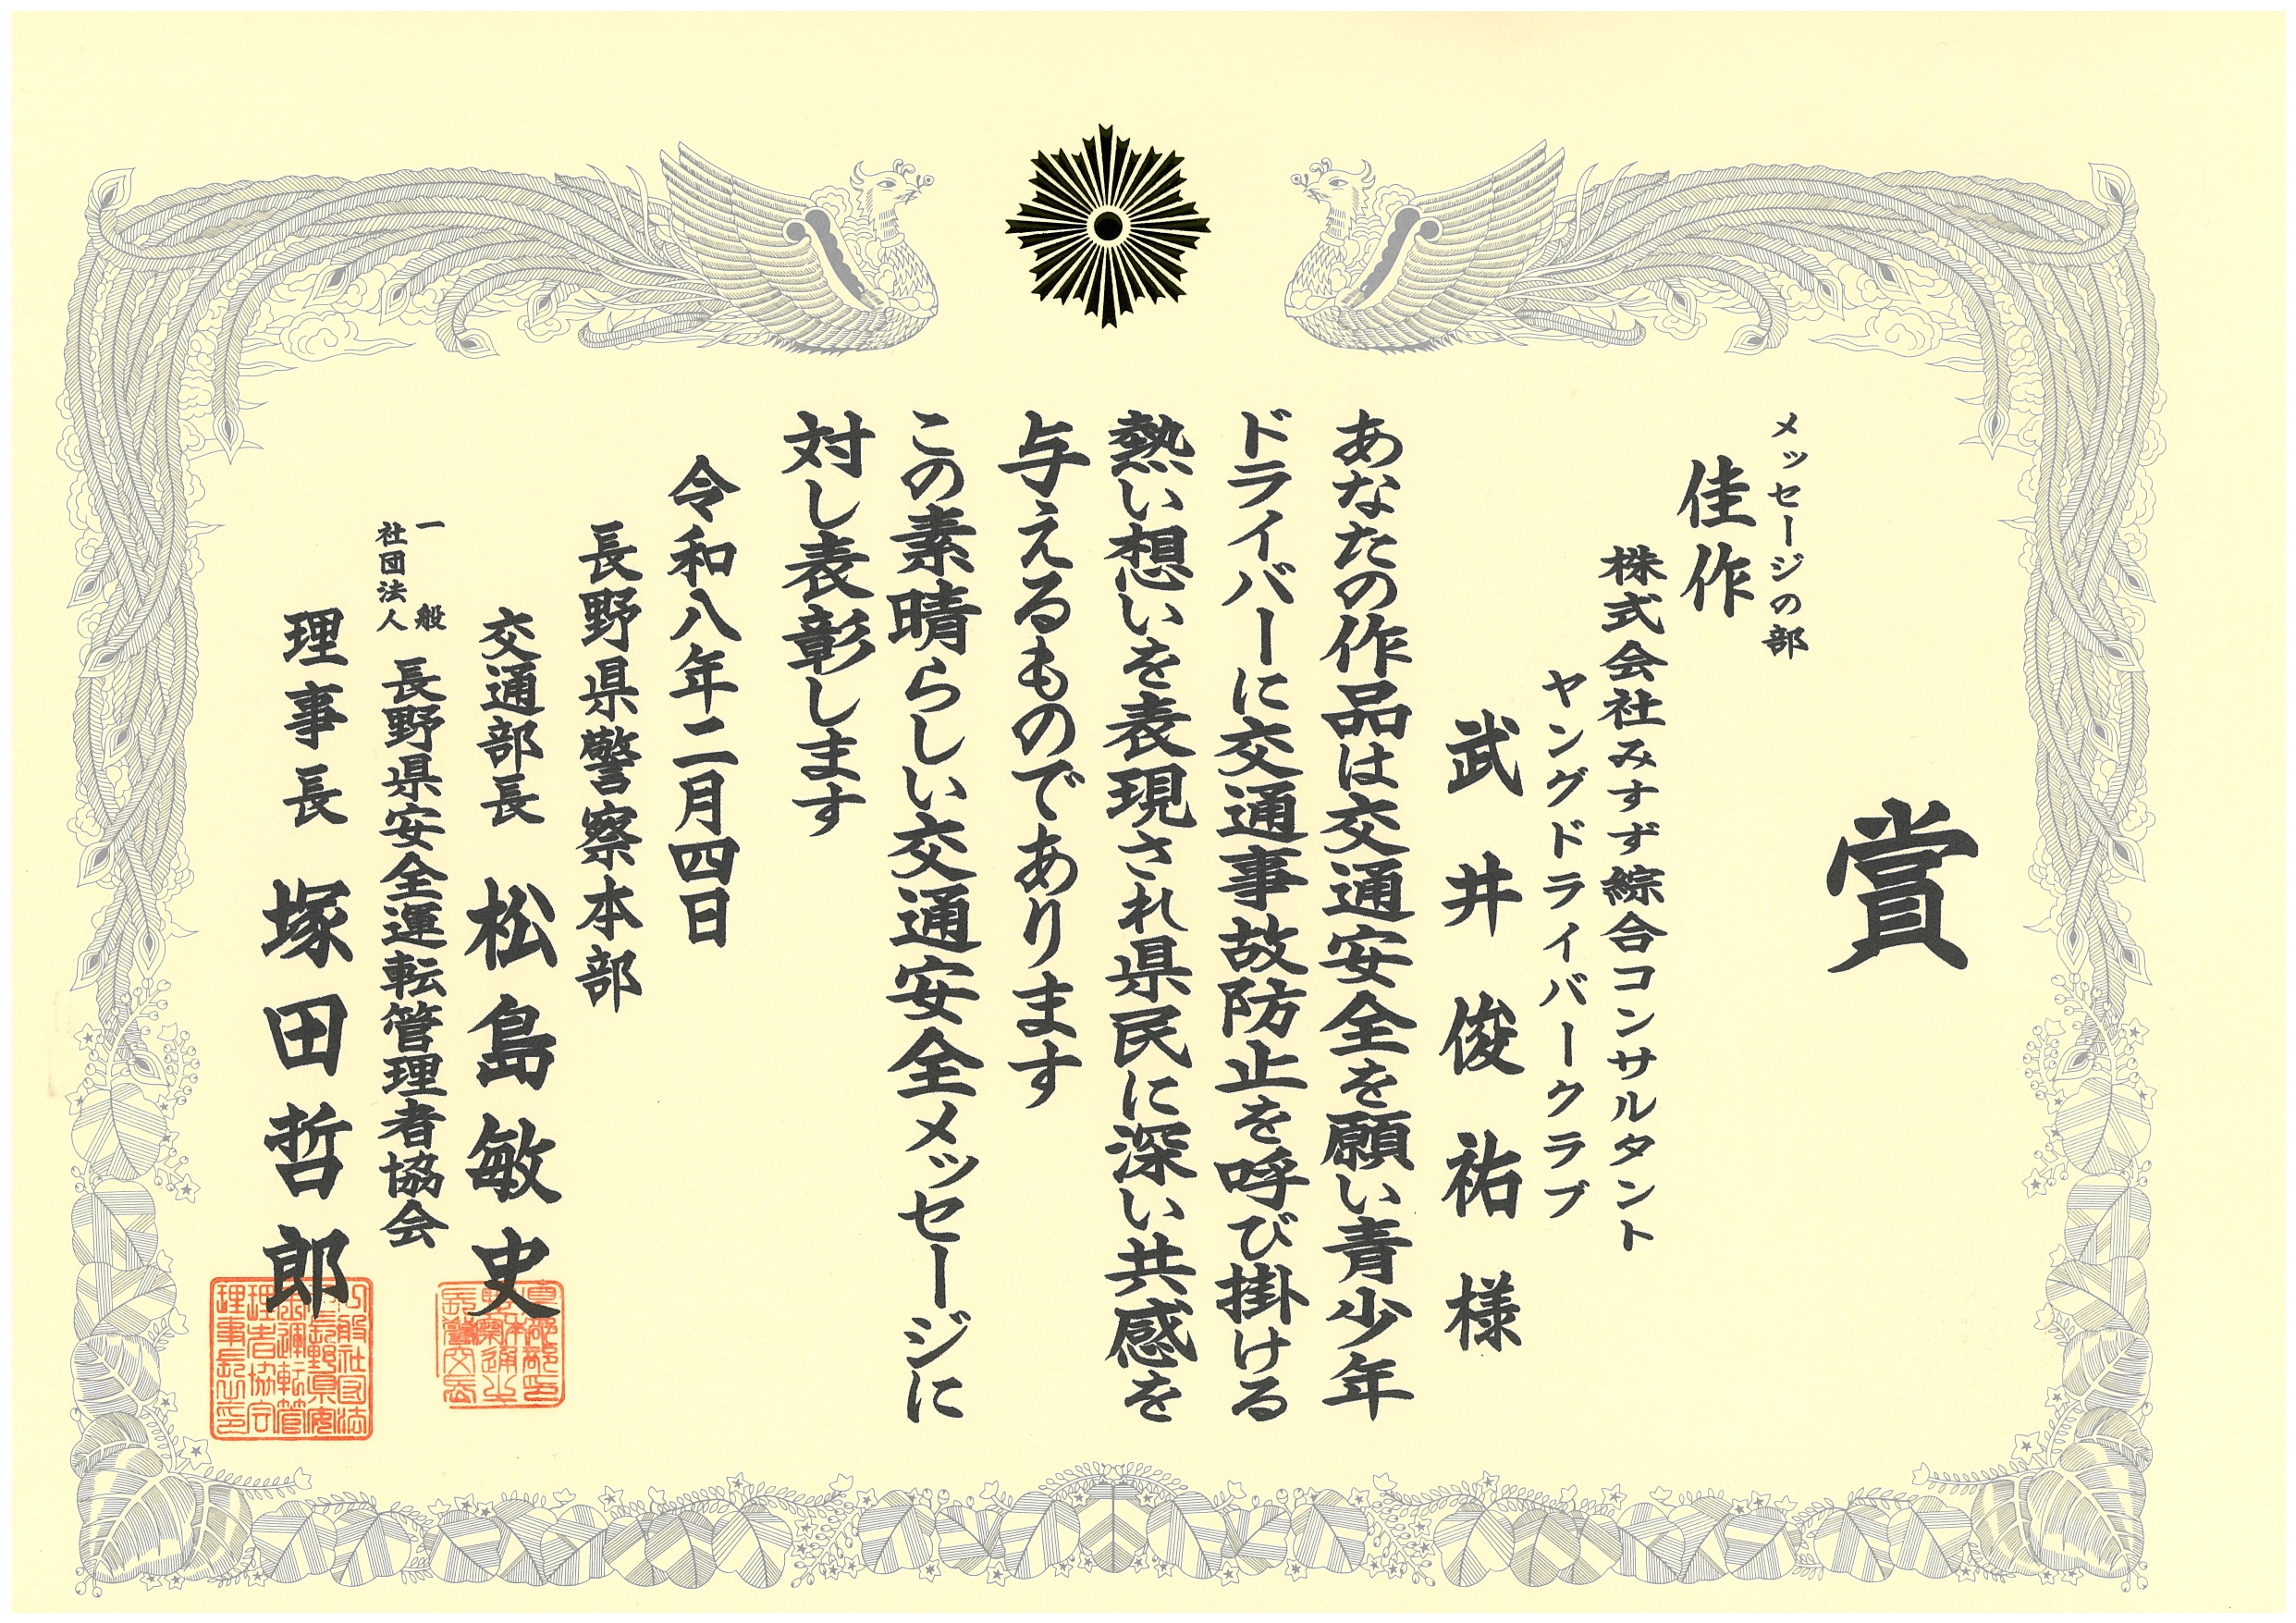 賞
メッセージの部
佳作
株式会社みすず綜合コンサルタント
ヤングドライバークラブ
武井俊祐様
あなたの作品は交通安全を願い青少年
ドライバーに交通事故防止を呼び掛ける
熱い想いを表現され県民に深い共感を
与えるものであります
この素晴らしい交通安全メッセージに
対し表彰します
令和八年二月四日
長野県警察本部
交通部長 松島敏史
一般社団法人 長野県安全運転管理者協会
理事長 塚田哲郎